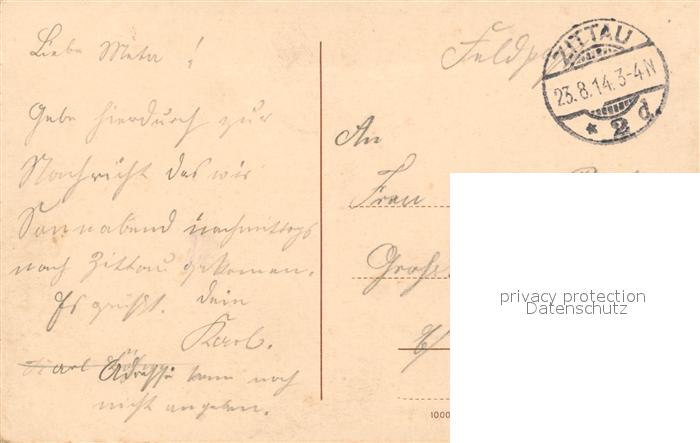 Liebe Meta!
Gebe hierdurch zur
Nachricht das wir
Sonnabend nachmittags
nach Zittau gekomen.
Es grüßt. Dein
Karl.
Karl Adresse kann noch
nicht angeben.
Feldp
ZITTAU
23.8.14.3-4N
* 2 d
An
Frau
Groß
b/
privacy protection
Datenschutz
1000